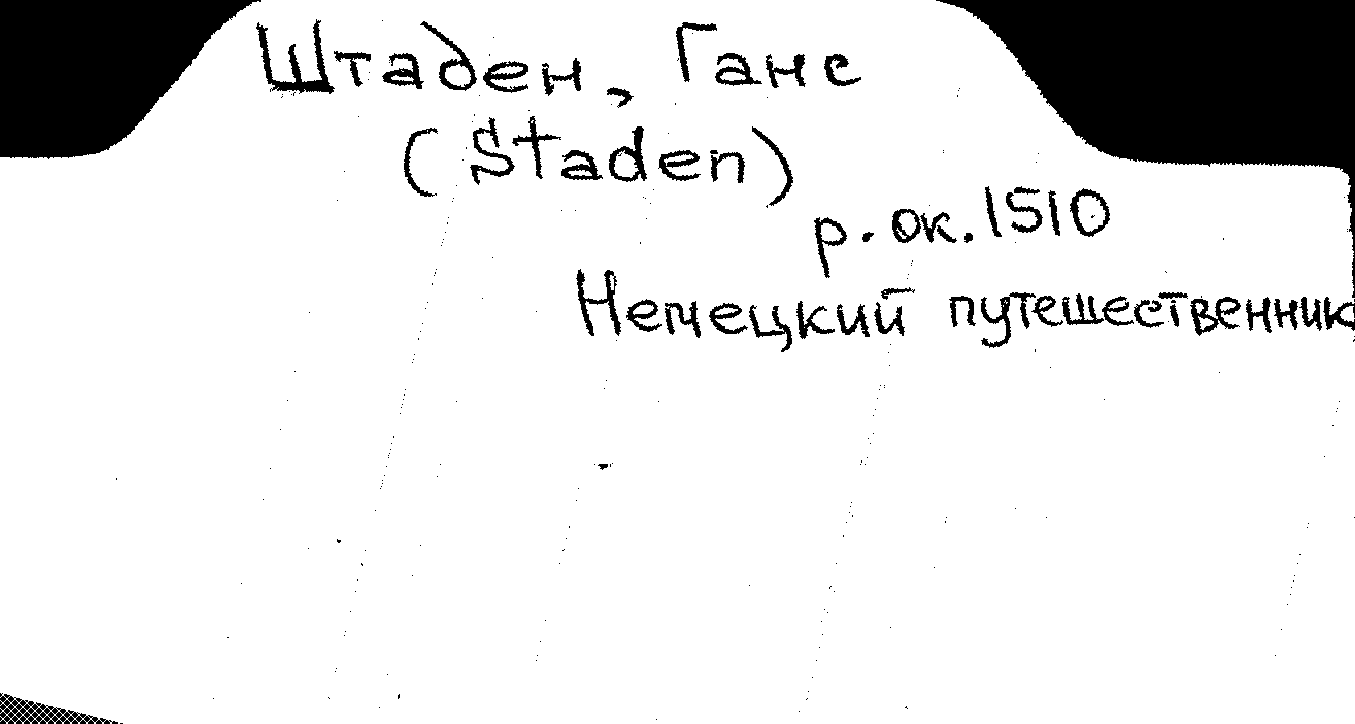 Штаден, Ганс
(Staden)
р. ок. 1510
Немецкий путешественник